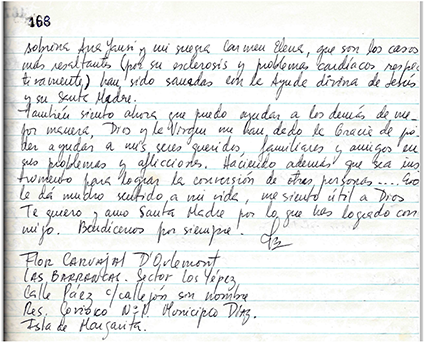 168
sobrina Ana Yansi y mi suegra Carmen Elena, que son los casos
más resaltantes (por su esclerosis y problemas cardíacos respec
tivamente) han sido sanadas con la Ayuda divina de Jesús
y su Santa Madre.
También siento ahora que puedo ayudar a los demás de me-
jor manera, Dios y la Virgen me han dado la Gracia de po-
der ayudar a mis seres queridos, familiares y amigos en
sus problemas y aflicciones. Haciendo además que sea ins
trumento para lograr la conversión de otras personas.... Eso
le dá mucho sentido a mi vida, me siento útil a Dios
Te quiero y amo Santa Madre por lo que has logrado con
migo. Bendícenos por siempre!
Flor CARVAJAL D'Orlemont
LAS BARRANCAS. Sector Los Yépez
Calle Páez c/callejón sin nombre
Res. N-P. Municipio DÍAZ.
Isla de Margarita.